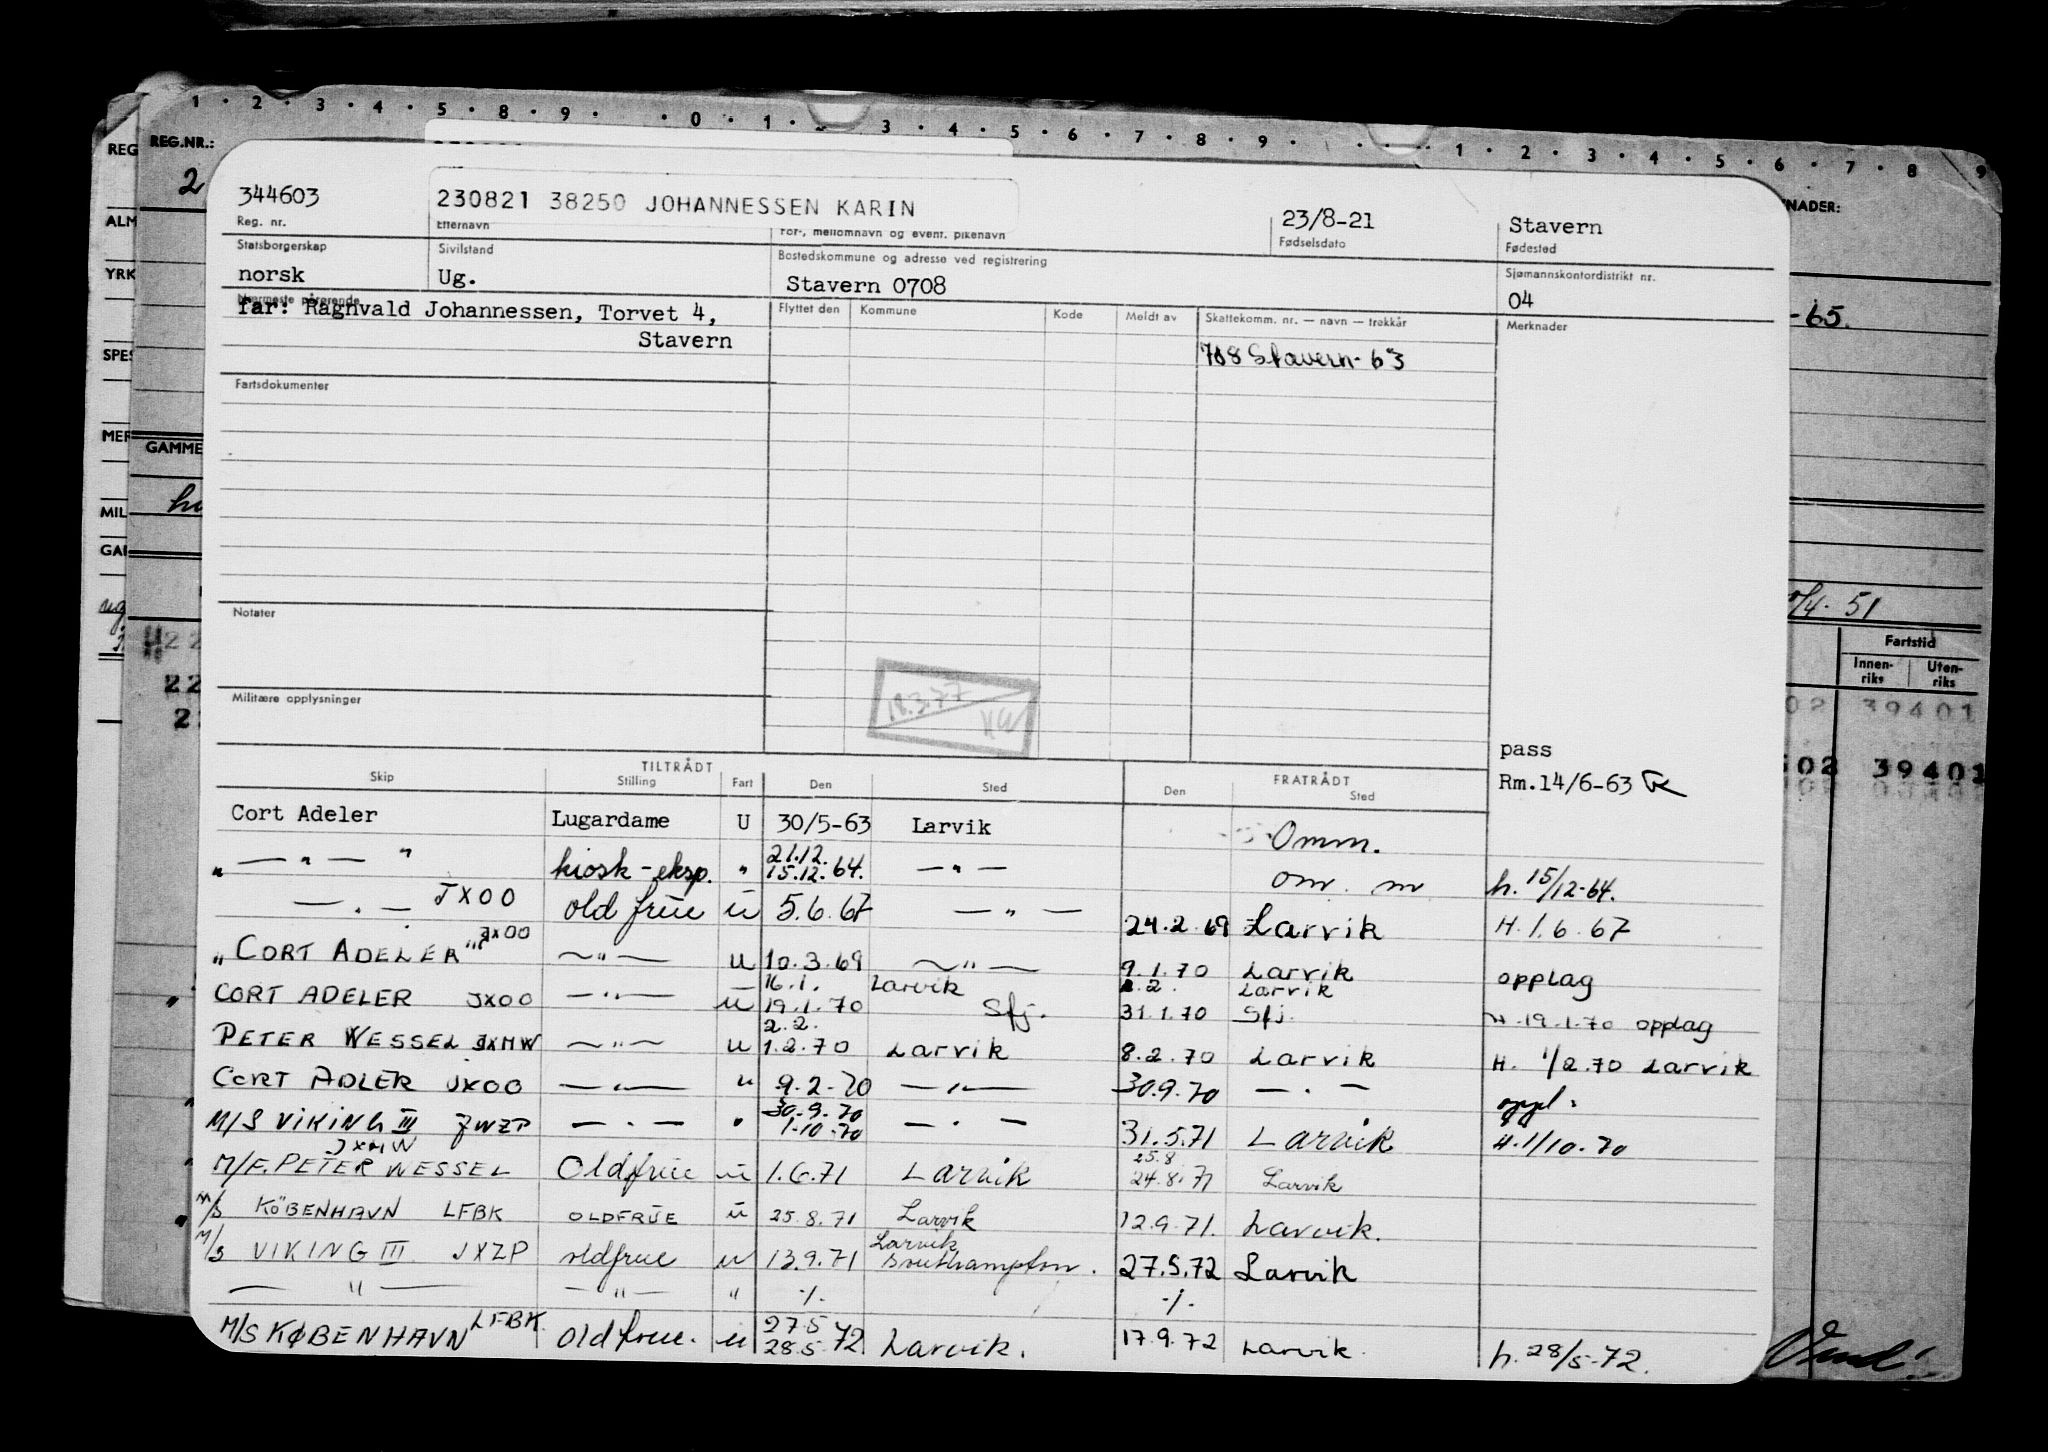 1 · 2 · 3 · 4 · 5 · 8 · 9 · · 0 · 1 · 3 · 4 · 5 · 6 · 7 · 8 · 9 · · · 1 · 2 · 3 · 4 · 5 · 6 · 7 · 8 9
REG REG.NR.: NADER:
2
344603 230821 38250 JOHANNESSEN KARIN 23/8-21 Stavern
Reg. nr. Etternavn For-, mellomnavn og event. pikenavn Fødselsdato Fødested
Statsborgerskap Sivilstand Bostedskommune og adresse ved registrering Sjømannskontordistrikt nr.
norsk Ug. Stavern 0708 04
Nærmeste pårørende Flyttet den Kommune Kode Meldt av Skattekomm. nr. — navn — trekkår Merknader
far: Ragnvald Johannessen, Torvet 4,
Stavern 708 Stavern - 63
-65.
Fartsdokumenter
ALM
YRK
SPES
MER
GAMME
MIL
GAR
Notater
Militære opplysninger
18.3.77
/4. 51
Fartstid
Innen-riks Uten-riks
02 39401
502 39401
22
pass
Rm.14/6-63
TILTRÅDT FRATRÅDT
Skip Stilling Fart Den Sted Den Sted
Cort Adeler Lugardame U 30/5-63 Larvik Omm.
" — " — " kiosk-eksp. " 21.12. 15.12.64. — " — om. m h. 15/12-64.
— " — JXOO oldfrue u 5.6.67 — " — 24.2.69 Larvik H. 1.6.67
"CORT ADELER" JXOO — " — u 10.3.69 — " — 9.1.70 Larvik opplag
CORT ADELER JXOO — " — u 16.1. 19.1.70 Larvik Sfj. 2.2. 31.1.70 Larvik Sfj. H. 19.1.70 opplag
PETER WESSEL JXMW — " — u 2.2. 1.2.70 Larvik 8.2.70 Larvik H. 1/2.70 Larvik
CORT ADLER JXOO — " — u 9.2-70 — " — 30.9.70 — " — oppl.
M/S VIKING III JWZP — " — " 30.9.70 1.10.70 — " — 31.5.71 LARVIK H.1/10.70
M/F. PETER WESSEL JXMW Oldfrue u 1.6.71 LARVIK 25.8 24.8.71 Larvik
M/S KÖBENHAVN LFBK OLDFRUE u 25.8.71 Larvik 12.9.71. Larvik.
M/S VIKING III JXZP oldfrue u 13.9.71 Larvik Southampton. 27.5.72 Larvik
— " — — " — " -/- -/-
M/S KØBENHAVN LFBK. Oldfrue. u 27.5 28.5.72 Larvik. 17.9.72 Larvik. h. 28/5-72.
Vend!